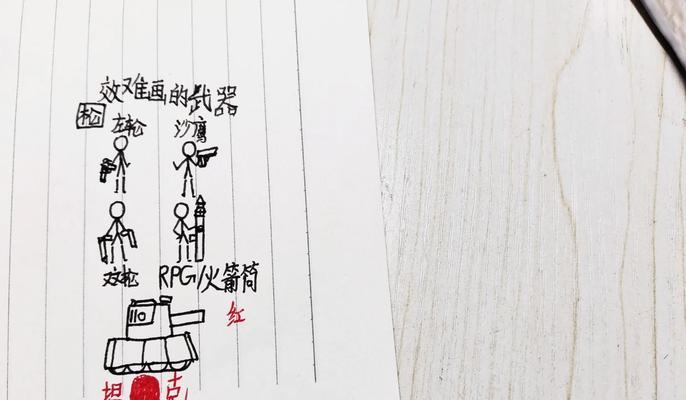 效难画的武器
枪
左轮 沙鹰
双枪 RPG/火箭筒
红
坦克